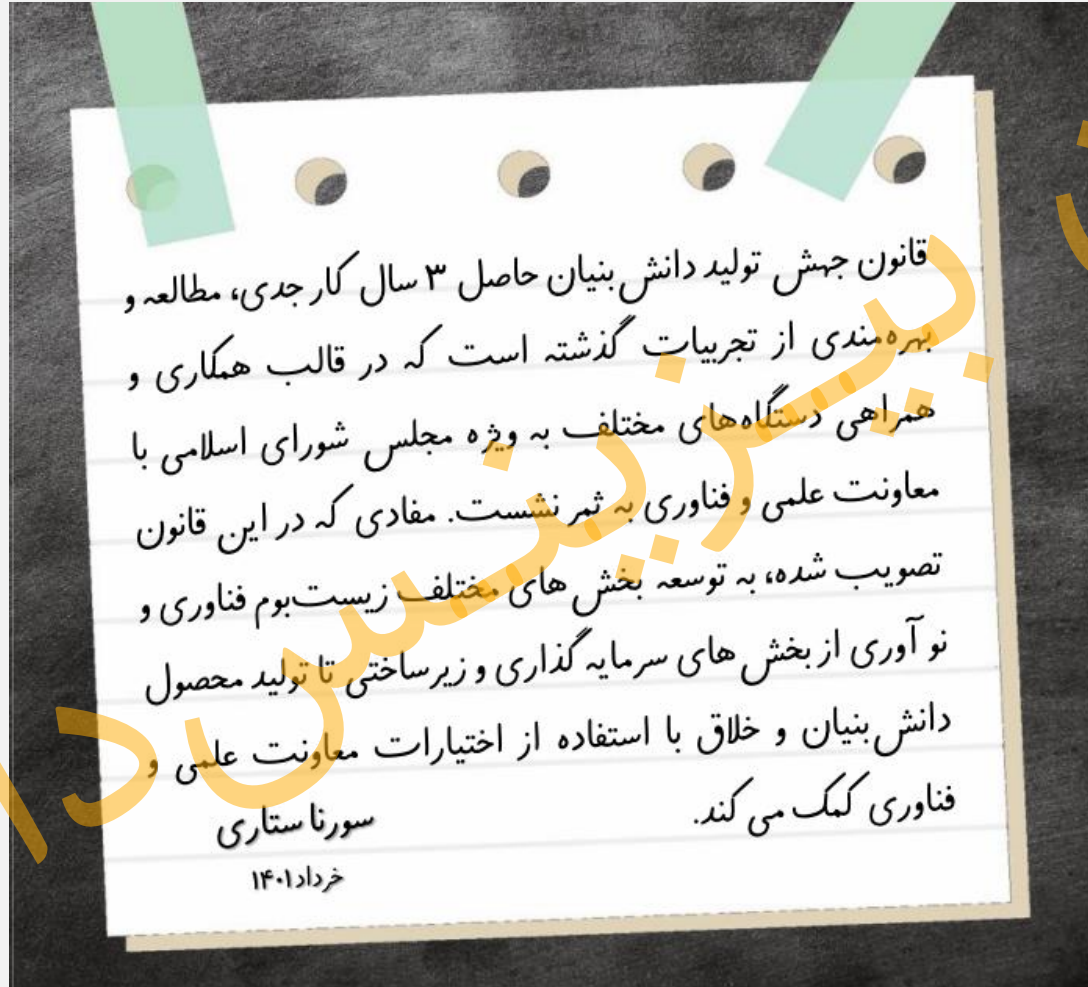 قانون جهش تولید دانش‌بنیان حاصل ۳ سال کار جدی، مطالعه و
بهره‌مندی از تجربیات گذشته است که در قالب همکاری و
همراهی دستگاه‌های مختلف به ویژه مجلس شورای اسلامی با
معاونت علمی و فناوری به ثمر نشست. مفادی که در این قانون
تصویب شده، به توسعه بخش های مختلف زیست‌بوم فناوری و
نو آوری از بخش های سرمایه گذاری و زیرساختی تا تولید محصول
دانش‌بنیان و خلاق با استفاده از اختیارات معاونت علمی و
فناوری کمک می کند.
سورنا ستاری
خرداد ۱۴۰۱